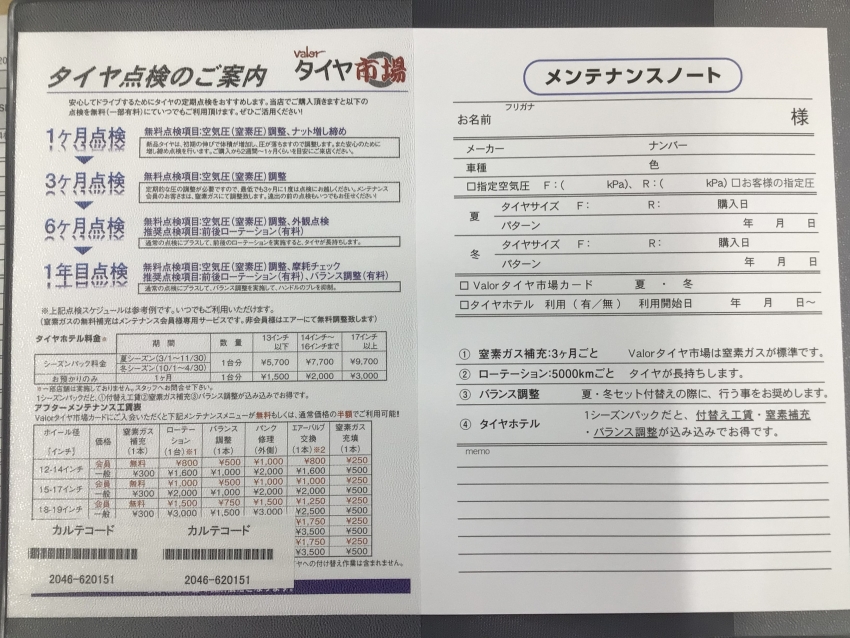 タイヤ点検のご案内
Valor
タイヤ市場
安心してドライブするためにタイヤの定期点検をおすすめします。当店でご購入頂きますと以下の
点検を無料(一部有料)にていつでもご利用頂けます。ぜひご活用ください!
1ヶ月点検 無料点検項目:空気圧(窒素圧)調整、ナット増し締め
新品タイヤは、初期の伸びで体積が増加し、圧が落ちますので調整します。また安心のために
増し締め点検を行います。ご購入から2週間～1ヶ月くらいを目安にご来店ください。
3ヶ月点検 無料点検項目:空気圧(窒素圧)調整
定期的な圧の調整が必要ですので、最低でも3ヶ月に1度は点検にお越しください。メンテナンス
会員のお客さまは、窒素ガスにて調整致します。遠出の前の点検もいつでもお任せください!
6ヶ月点検 無料点検項目:空気圧(窒素圧)調整、外観点検
推奨点検項目:前後ローテーション(有料)
通常の点検にプラスして、前後のローテーションを実施すると、タイヤが長持ちします。
1年目点検 無料点検項目:空気圧(窒素圧)調整、摩耗チェック
推奨点検項目:前後ローテーション(有料)、バランス調整(有料)
通常の点検にプラスして、バランス調整を実施して、ハンドルのブレを抑制。
※上記点検スケジュールは参考例です。いつでもご利用いただけます。
(窒素ガスの無料補充はメンテナンス会員様専用サービスです。非会員様はエアーにて無料調整致します)
タイヤホテル料金※ 期間 数量 13インチ以下 14インチ～16インチまで 17インチ以上
シーズンパック料金 夏シーズン(3/1～11/30) 1台分 ¥5,700 ¥7,700 ¥9,700
冬シーズン(10/1～4/30)
お預かりのみ 1ヶ月 1台分 ¥1,500 ¥2,000 ¥3,000
※一部店舗は実施しておりません。スタッフへお問合せ下さい。
1シーズンパックだと、①付替え工賃②窒素ガス補充③バランス調整が込み込みでお得です。
アフターメンテナンス工賃表
Valorタイヤ市場カードにご入会いただくと下記メンテナンスメニューが無料もしくは、通常価格の半額でご利用可能!
ホイール径[インチ] 価格 窒素ガス補充(1本) ローテーション(1台)※1 バランス調整(1本) パンク修理(外側) エアーバルブ交換(1本)※2 窒素ガス充填(1本)
12-14インチ 会員 無料 ¥800 ¥500 ¥1,000 ¥800 ¥250
一般 ¥300 ¥1,600 ¥1,000 ¥2,000 ¥1,600 ¥500
15-17インチ 会員 無料 ¥1,000 ¥500 ¥1,000 ¥1,000 ¥250
一般 ¥300 ¥2,000 ¥1,000 ¥2,000 ¥2,000 ¥500
18-19インチ 会員 無料 ¥1,500 ¥750 ¥1,500 ¥1,250 ¥250
一般 ¥300 ¥3,000 ¥1,500 ¥3,000 ¥2,500 ¥500
¥1,750 ¥250
¥3,500 ¥500
¥1,750 ¥250
¥3,500 ¥500
への付け替え作業は含まれません。
カルテコード カルテコード
2046-620151 2046-620151
メンテナンスノート
フリガナ
お名前 様
メーカー ナンバー
車種 色
□指定空気圧 F:( kPa)、R:( kPa) □お客様の指定圧
夏 タイヤサイズ F: R: 購入日
パターン 年 月 日
冬 タイヤサイズ F: R: 購入日
パターン 年 月 日
□ Valorタイヤ市場カード 夏 ・ 冬
□タイヤホテル 利用(有/無) 利用開始日 年 月 日～
① 窒素ガス補充:3ヶ月ごと Valorタイヤ市場は窒素ガスが標準です。
② ローテーション:5000kmごと タイヤが長持ちします。
③ バランス調整 夏・冬セット付替えの際に、行う事をお奨めします。
④ タイヤホテル 1シーズンパックだと、付替え工賃・窒素補充
・バランス調整が込み込みでお得です。
memo